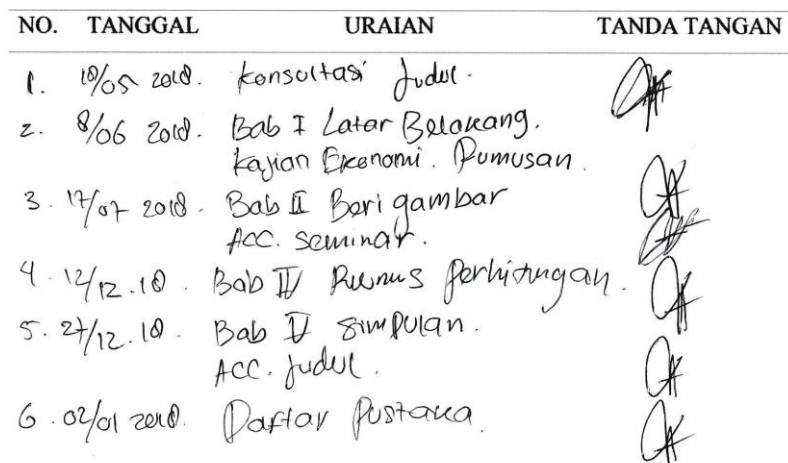 NO. TANGGAL URAIAN TANDA TANGAN
1. 18/05 2018. Konsultasi Judul.
2. 8/06 2018. Bab I Latar Belakang.
Kajian Ekonomi. Rumusan.
3. 17/07 2018. Bab II Beri gambar
ACC. Seminar.
4. 12/12.18. Bab IV Rumus Perhitungan.
5. 27/12.18. Bab V Simpulan.
ACC. Judul.
6. 02/01 2018. Daftar Pustaka.